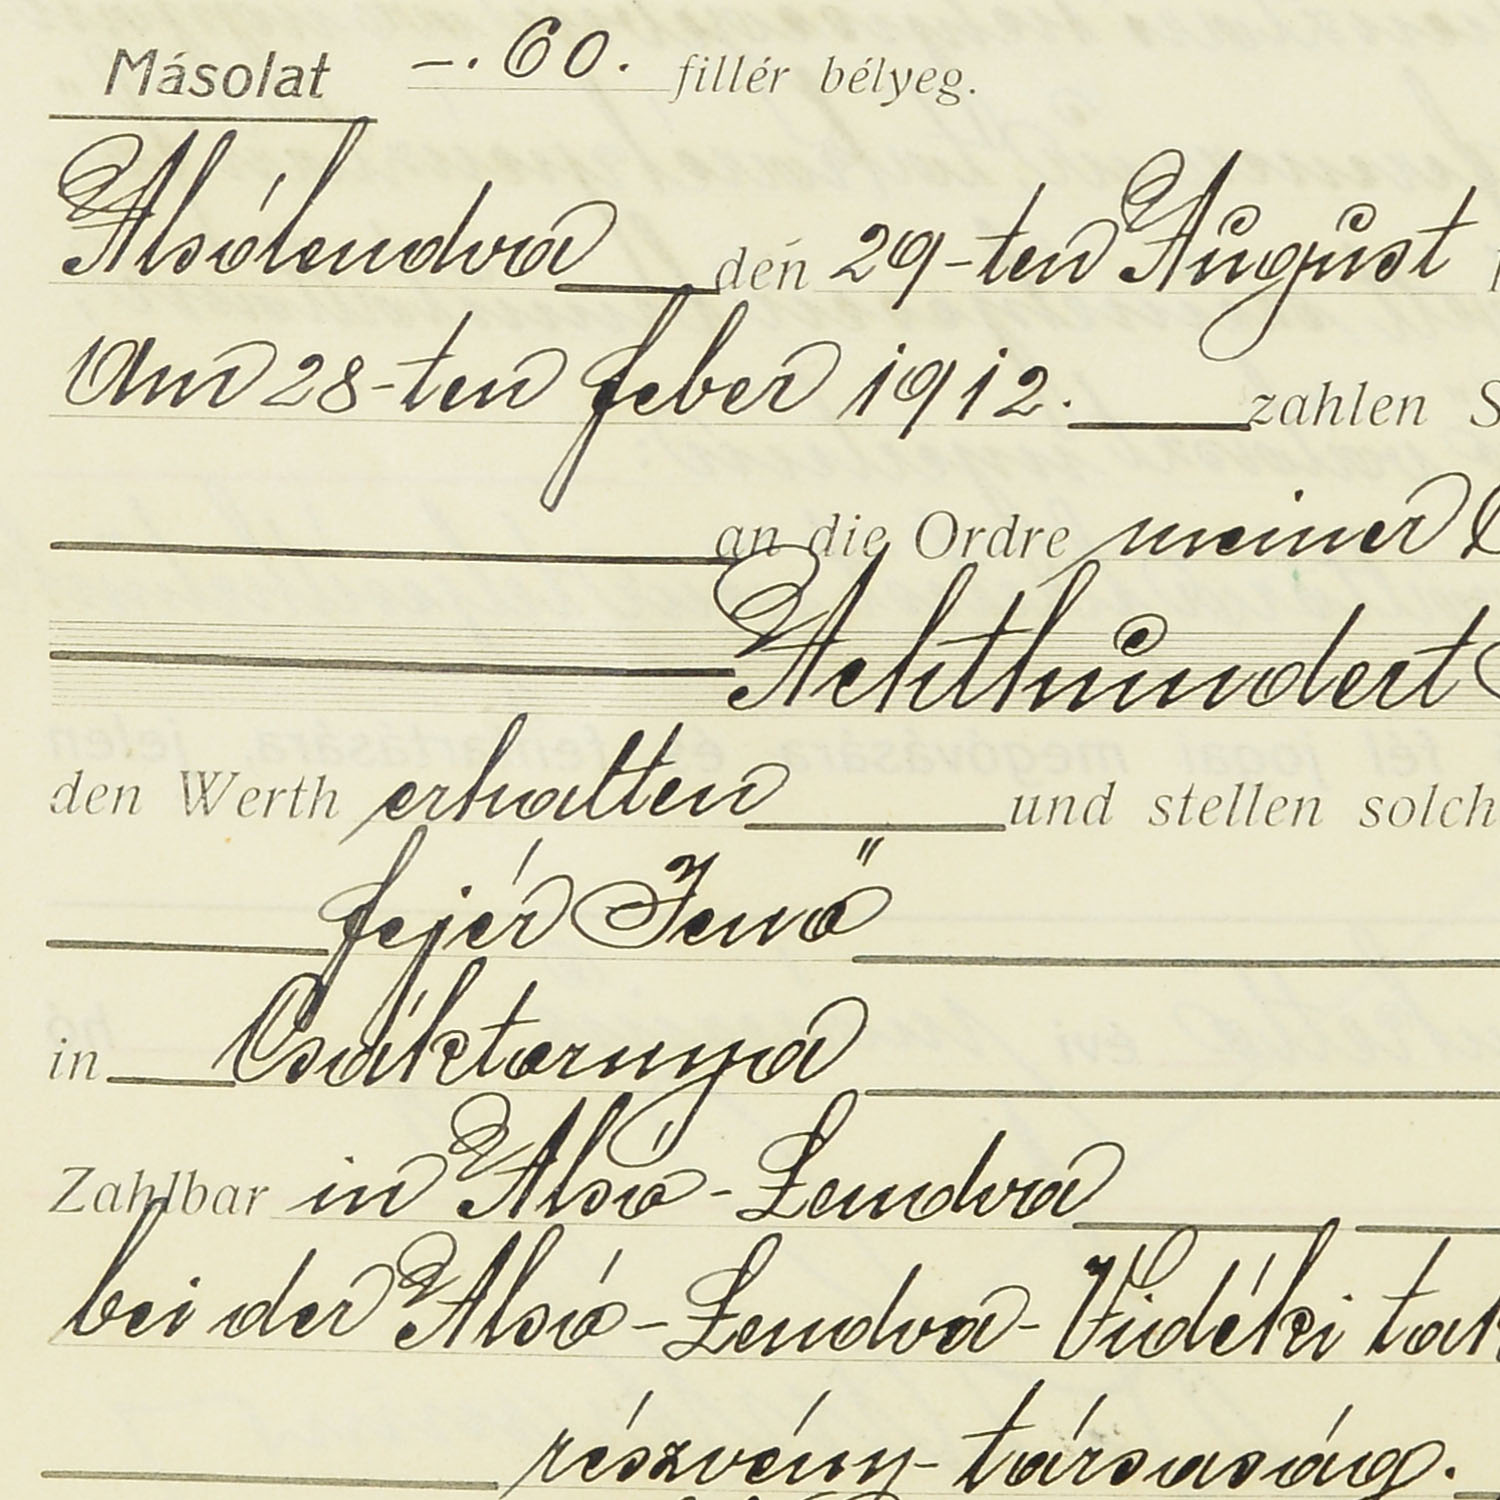 Másolat –. 60. fillér bélyeg.
Alsólendva den 29-ten August
Am 28-ten feber 1912. zahlen
an die Ordre meiner
Achthundert
den Werth erhalten und stellen solch
fejér Jenő
in Csáktornya
Zahlbar in Alsó-Lendva
bei der Alsó-Lendva-Vidéki tak
részvény-társaság.